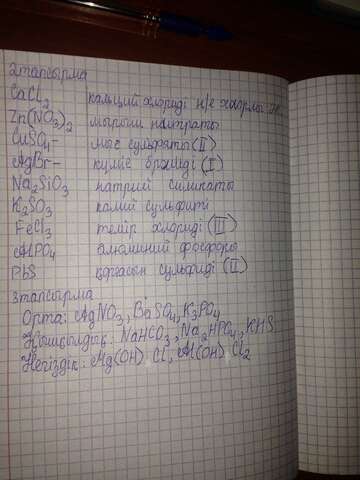 2тапсырма
CaCl2 кальций хлориді н/е хлорлы
Zn(NO3)2 мырыш нитраты
CuSO4- мыс сульфаты (II)
AgBr- күміс бромиді (I)
Na2SiO3 натрий силикаты
K2SO3 калий сульфиті
FeCl3 темір хлориді (III)
AlPO4 алюминий фосфоры
PbS қорғасын сульфиді (II)
3тапсырма
Орта: AgNO3, BaSO4, K3PO4
Қышқылдық: NaHCO3, Na2HPO4, KHS
Негіздік: Mg(OH)Cl, Al(OH)Cl2